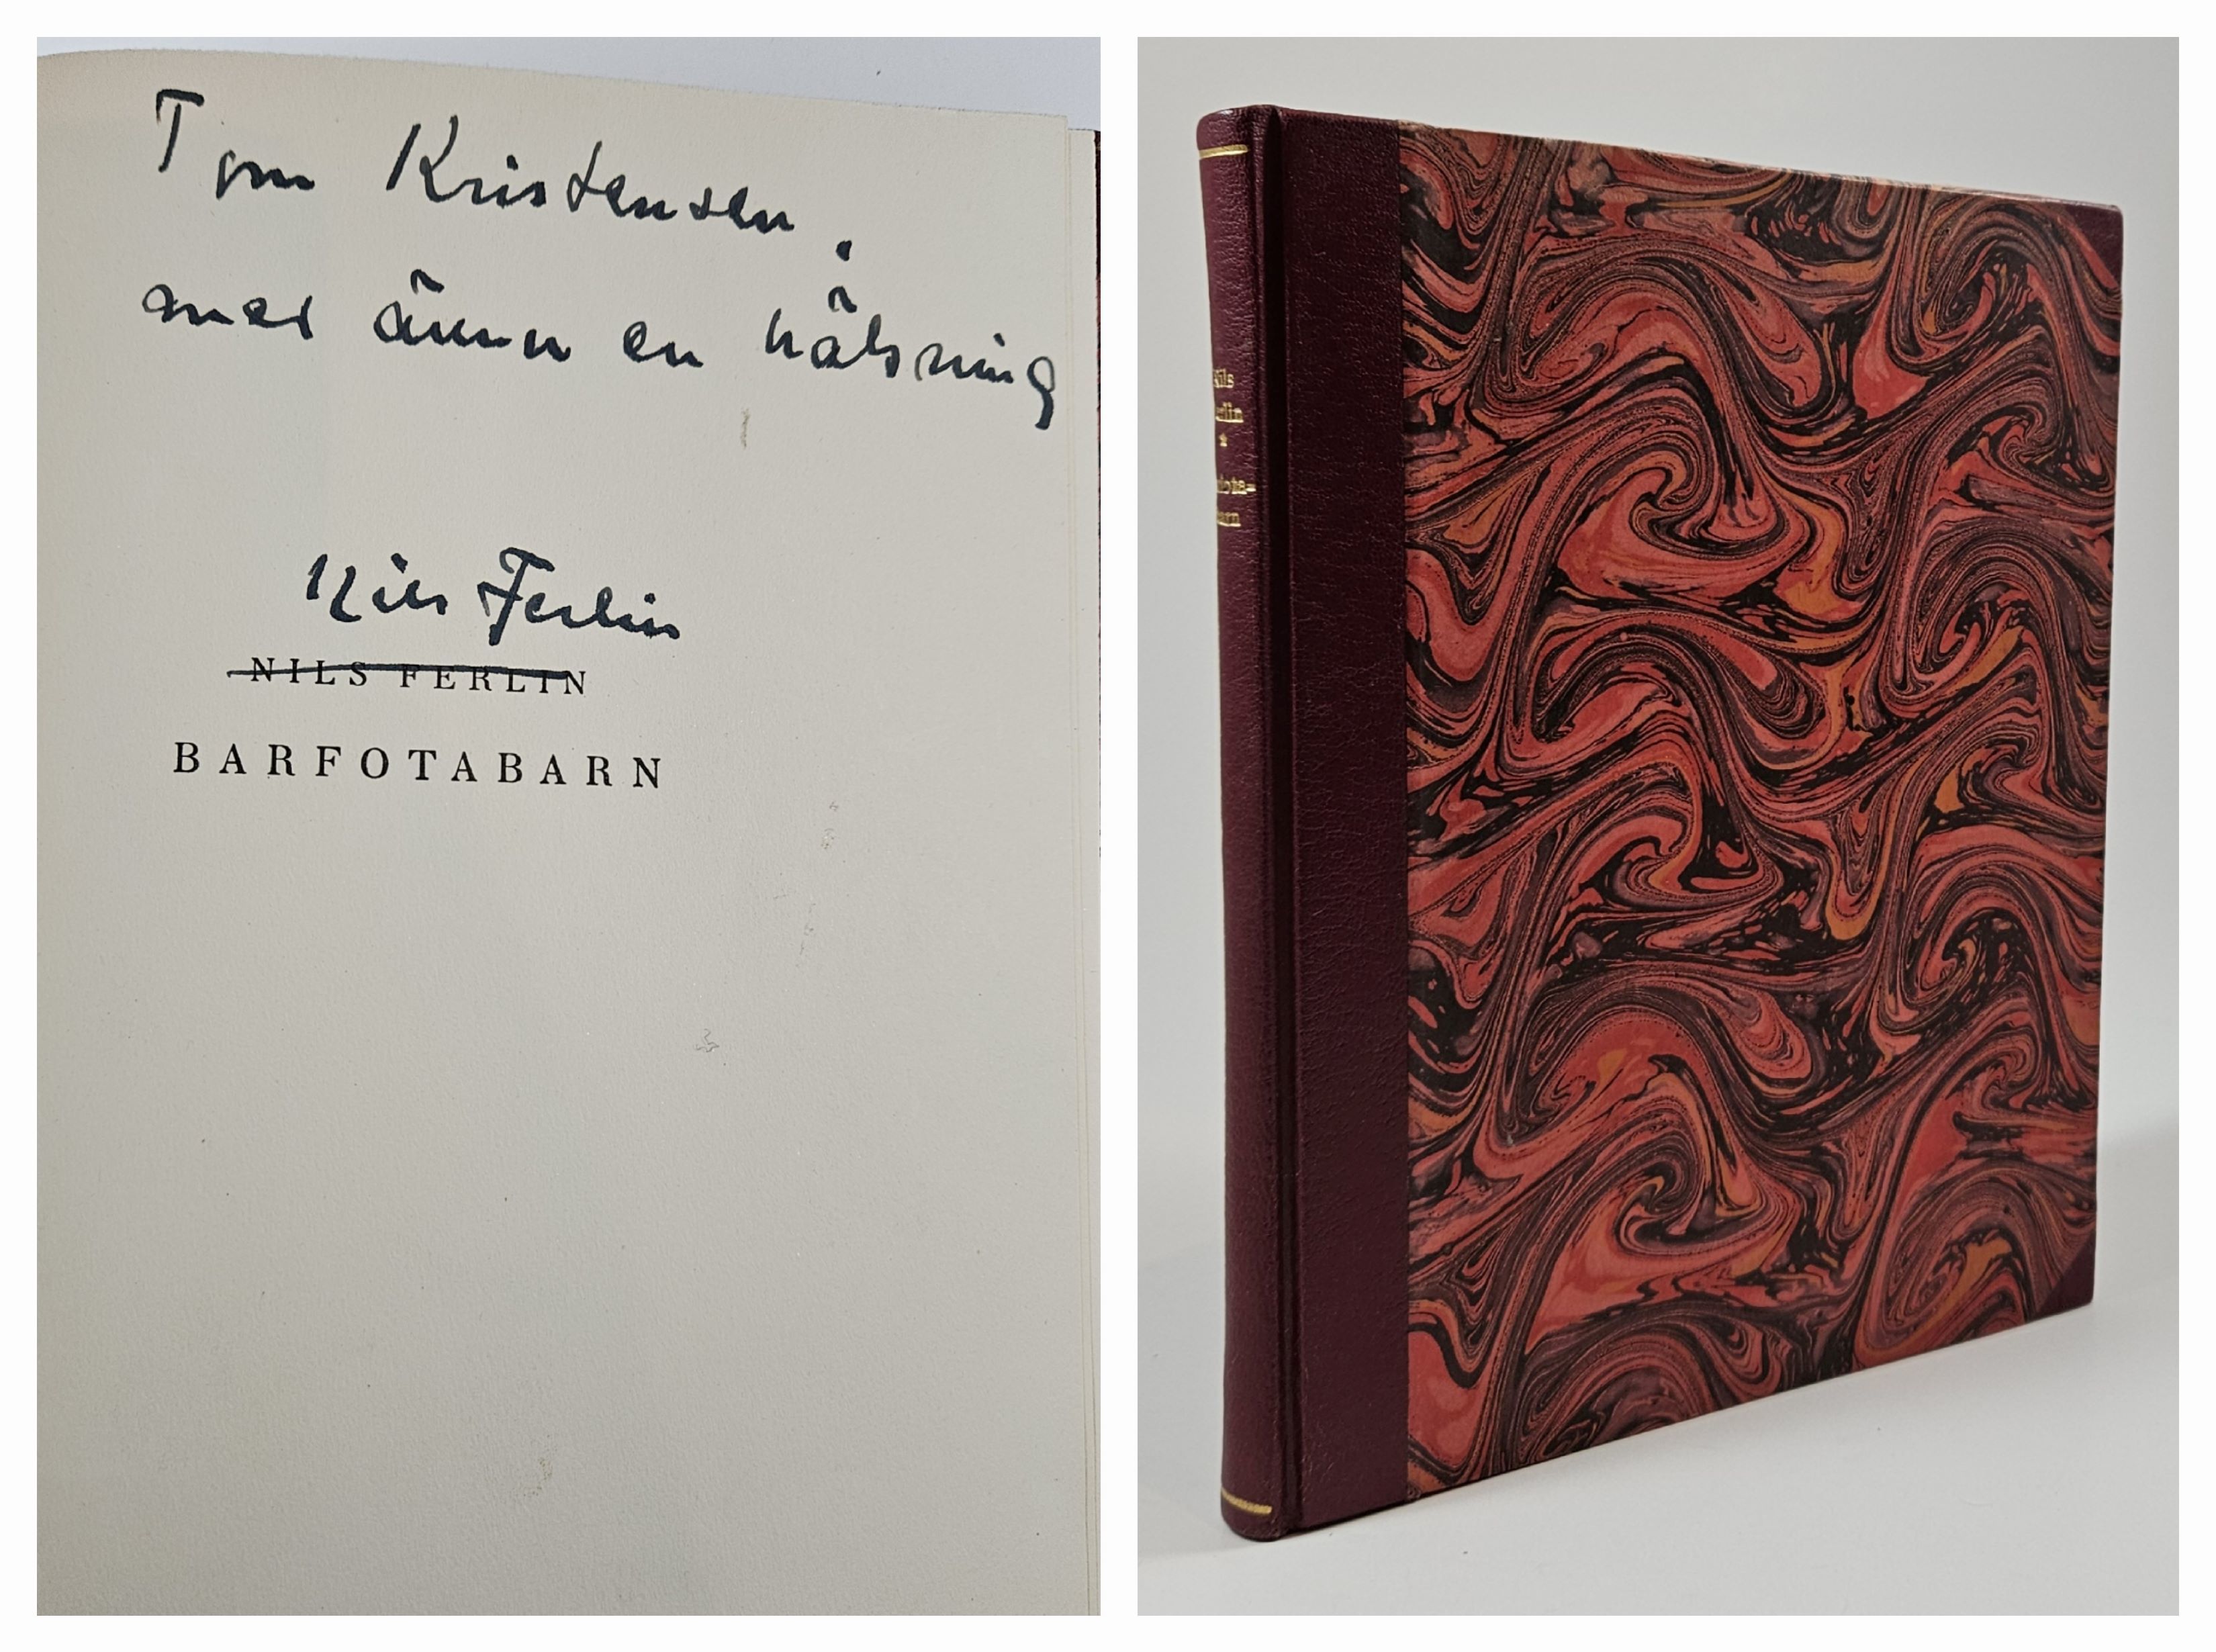 Tom Kristensen,
med ännu en hälsning
Nils Ferlin
NILS FERLIN
BARFOTABARN